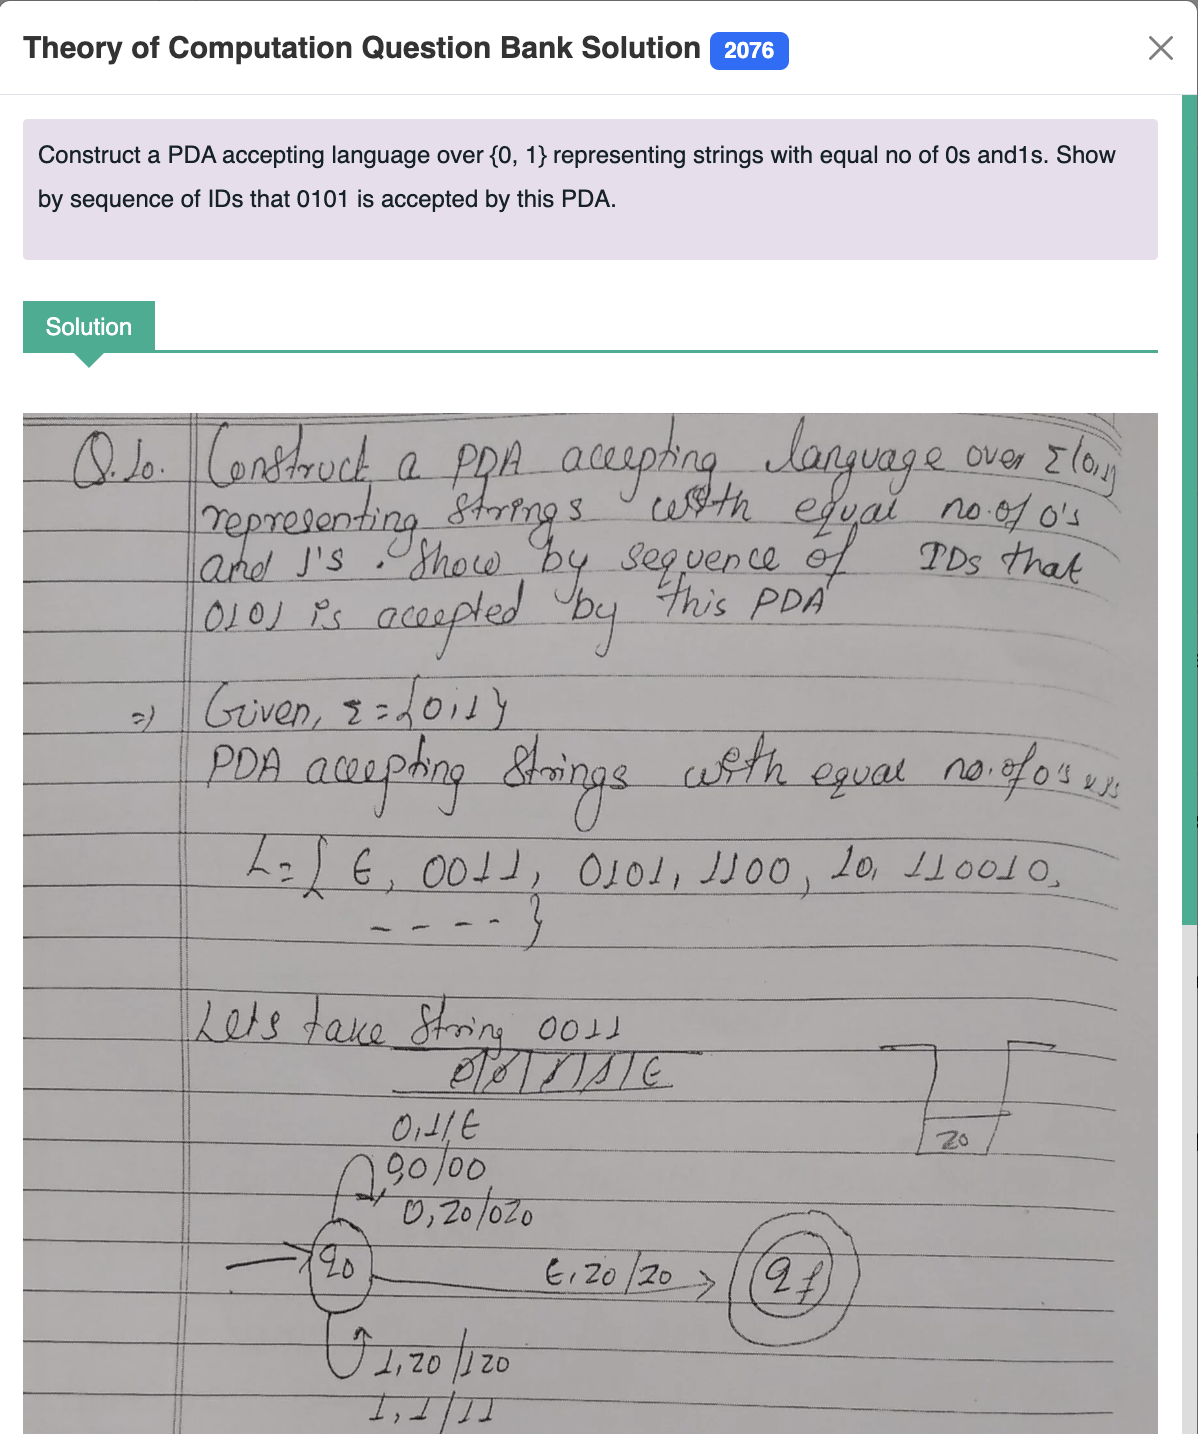 Theory of Computation Question Bank Solution 2076
Construct a PDA accepting language over {0, 1} representing strings with equal no of 0s and1s. Show
by sequence of IDs that 0101 is accepted by this PDA.
Solution
Q.10. Construct a PDA accepting language over Σ{0,1}
representing strings with equal no. of 0's
and 1's. Show by sequence of IDs that
0101 is accepted by this PDA
=) Given, Σ = {0,1}
PDA accepting Strings with equal no. of 0's & 1's
L = { ε, 0011, 0101, 1100, 10, 110010,
---- }
Lets take String 0011
0|0|1|1|ε
0,1/ε
0,0/00
0,z0/0z0
z0
q0
ε,z0/z0
qf
1,z0/1z0
1,1/11